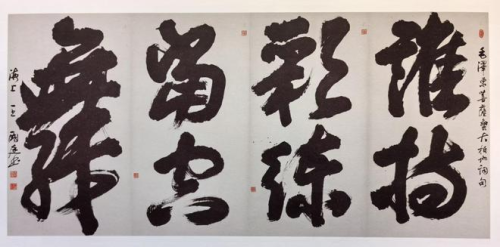 毛澤東菩薩蠻大柏地詞句
誰持
彩練
當空
舞
海上